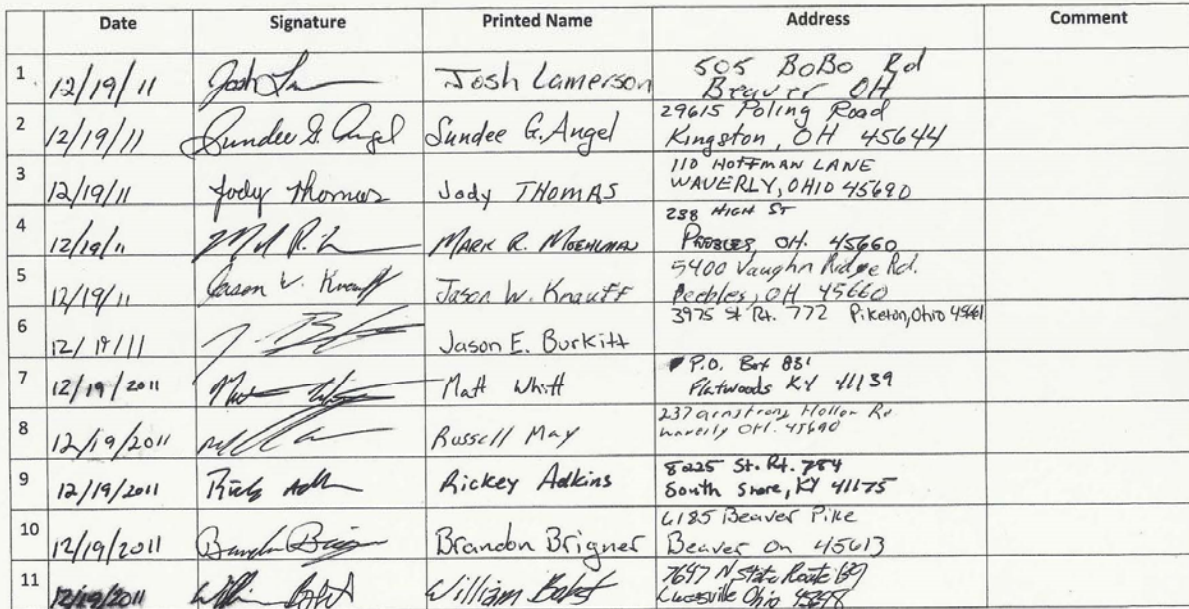 Date Signature Printed Name Address Comment
1 12/19/11 Josh Lamerson 505 BoBo Rd
Beaver OH
2 12/19/11 Sundee G. Angel Sundee G. Angel 29615 Poling Road
Kingston, OH 45644
3 12/19/11 Jody Thomas Jody THOMAS 110 HOFFMAN LANE
WAVERLY, OHIO 45690
4 12/19/11 MARK R. MOEHLMAN 238 HIGH ST
PEEBLES, OH. 45660
5 12/19/11 Jason W. Knauff Jason W. Knauff 5400 Vaughn Ridge Rd.
Peebles, OH 45660
6 12/19/11 Jason E. Burkitt 3975 St Rt. 772 Piketon, Ohio 45661
7 12/19/2011 Matt Whitt P.O. Box 831
Flatwoods KY 41139
8 12/19/2011 Russell May 237 armstrong Hollow Rd
waverly OH. 45690
9 12/19/2011 Rickey Adkins 8225 St. Rt. 784
South Shore, KY 41175
10 12/19/2011 Brandon Brigner 6185 Beaver Pike
Beaver OH 45613
11 12/19/2011 William 7647 N State Route
Ohio